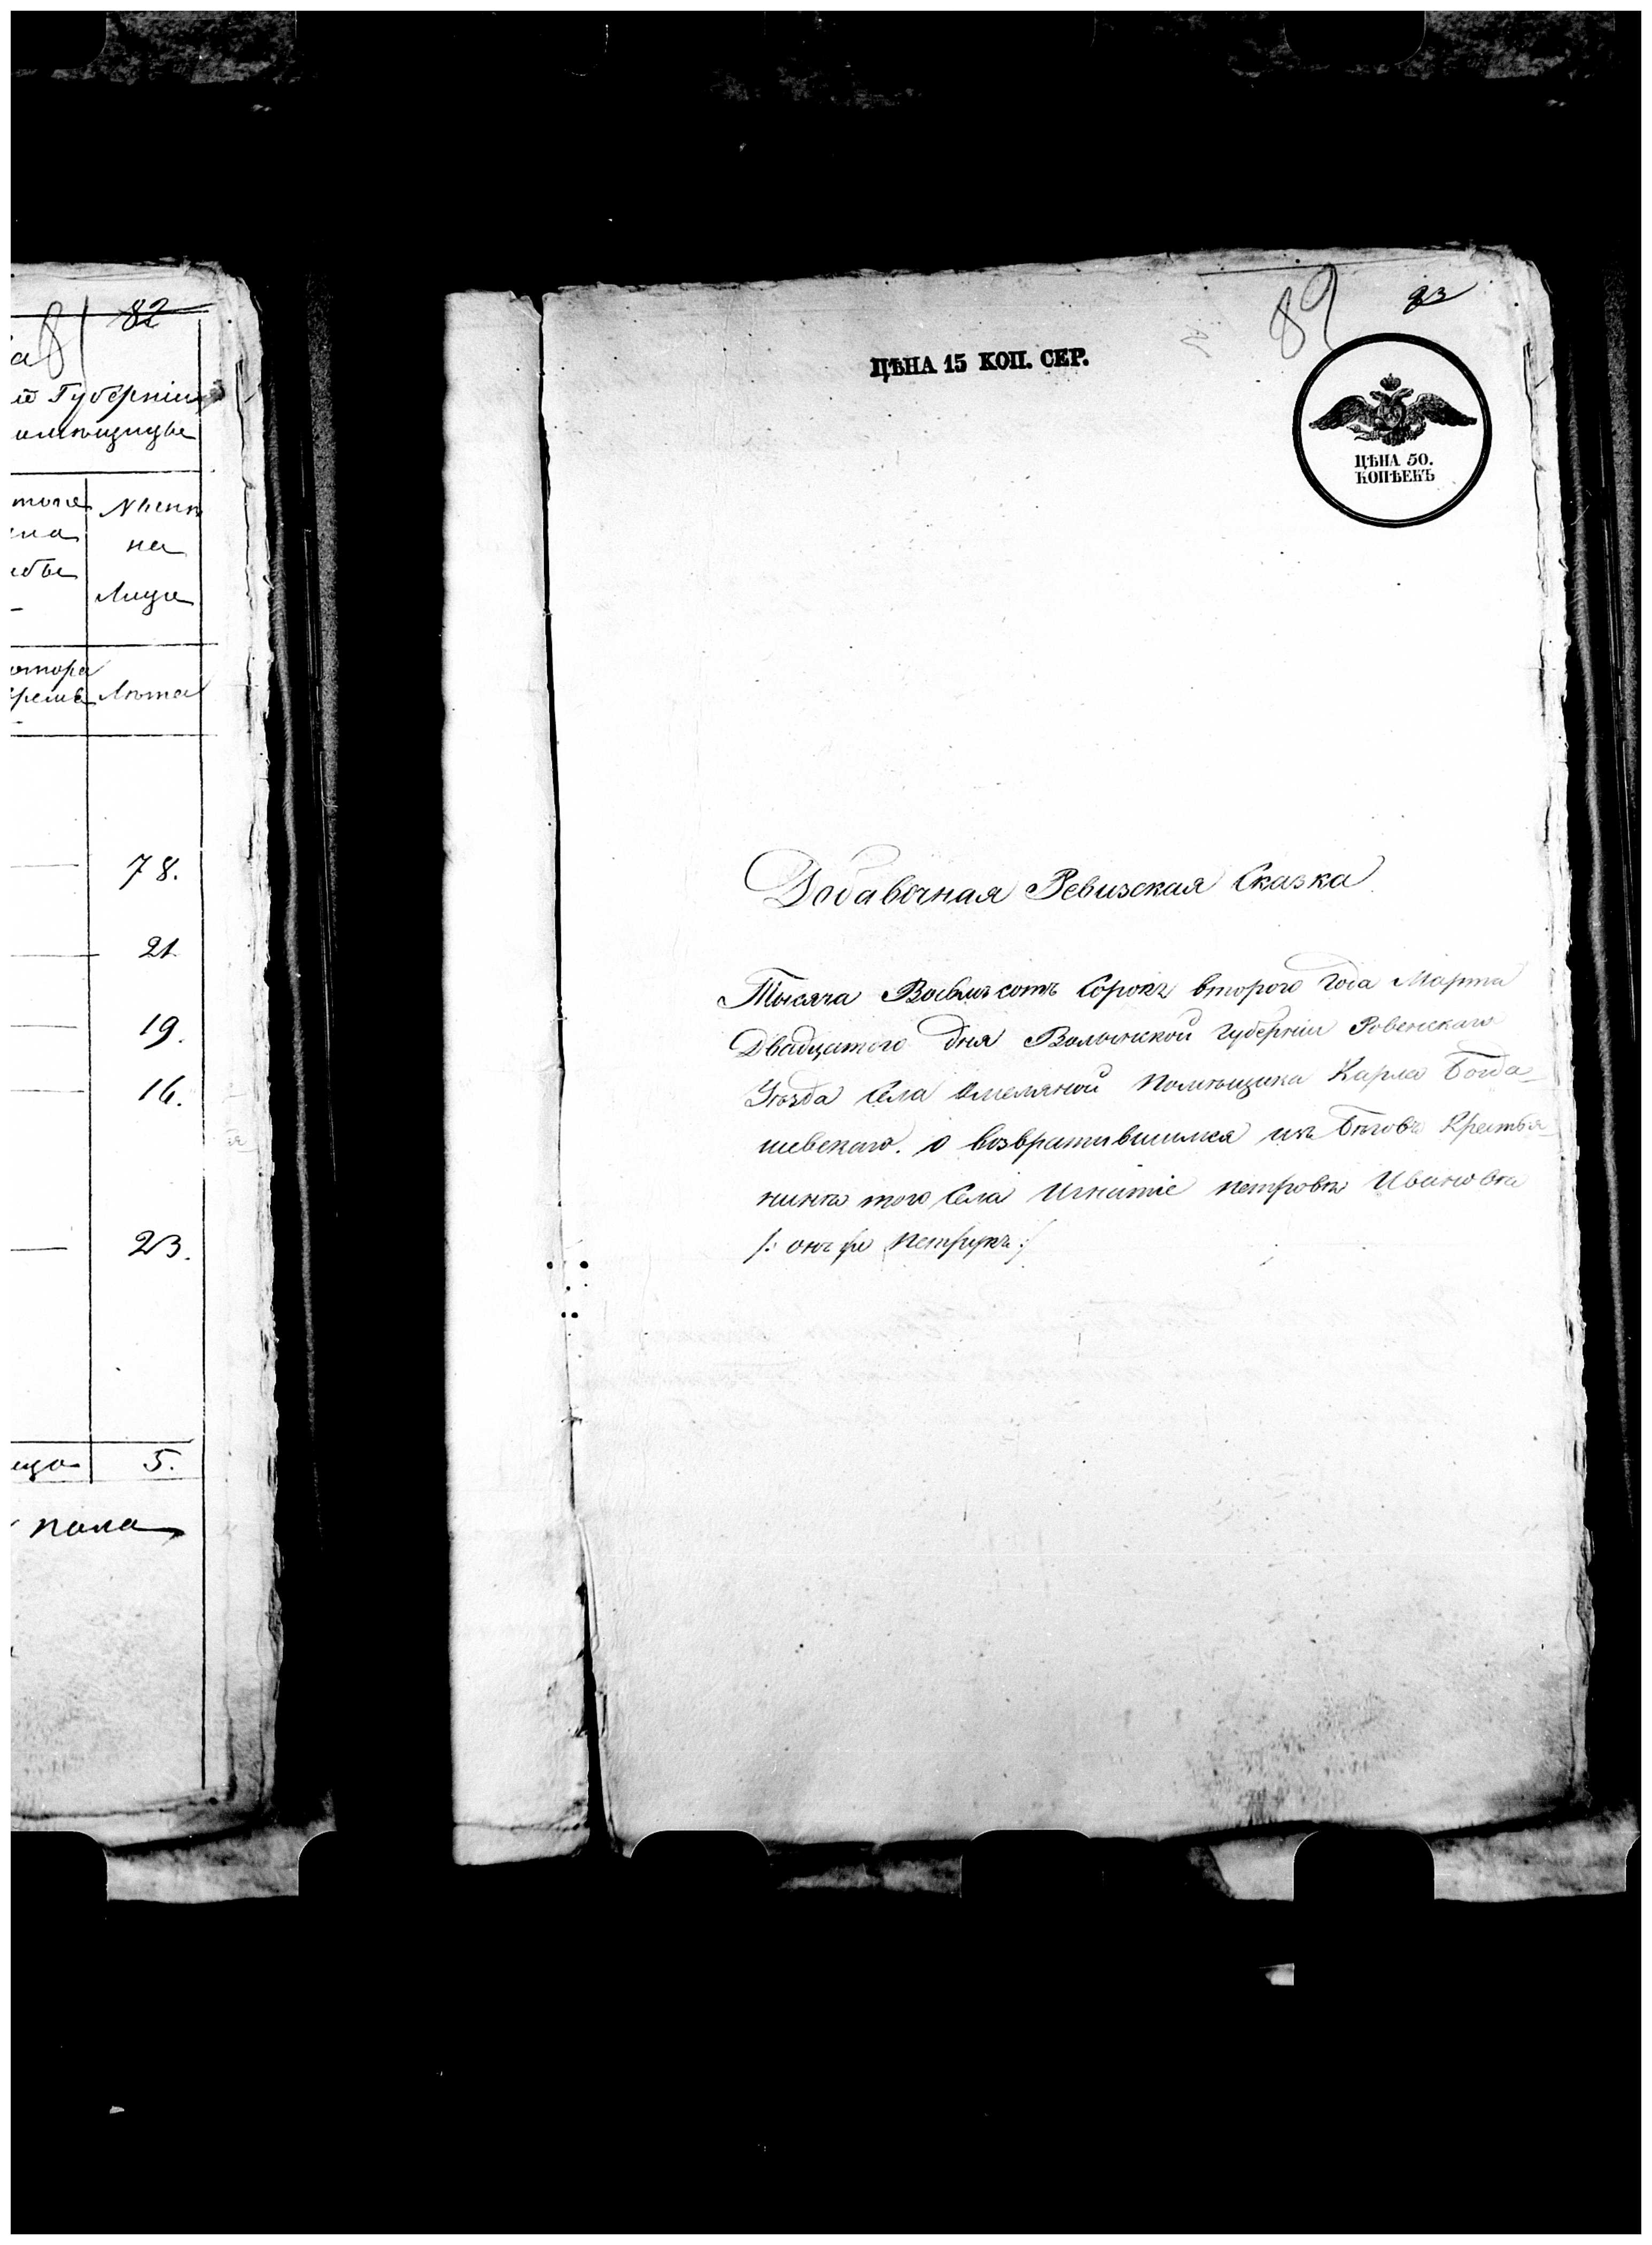 82
81
Губерніи
помѣщицы
на
Лицо
Лѣта
78.
21.
19.
16.
23.
5.
пола
82
83
ЦѢНА 15 КОП. СЕР.
ЦѢНА 50.
КОПѢЕКЪ
Добавочная Ревизская Сказка
Тысяча Восемьсотъ Сорокъ втораго года Марта
Двадцатого дня Волынской Губерніи Ровенскаго
Уѣзда Села Омеляной Помѣщика Карла Богда-
шевскаго. о возвратившимся изъ бѣговъ Крестья-
нинѣ того Села Игнатіе Петровѣ Ивановѣ
/: онъ же Петрукъ :/